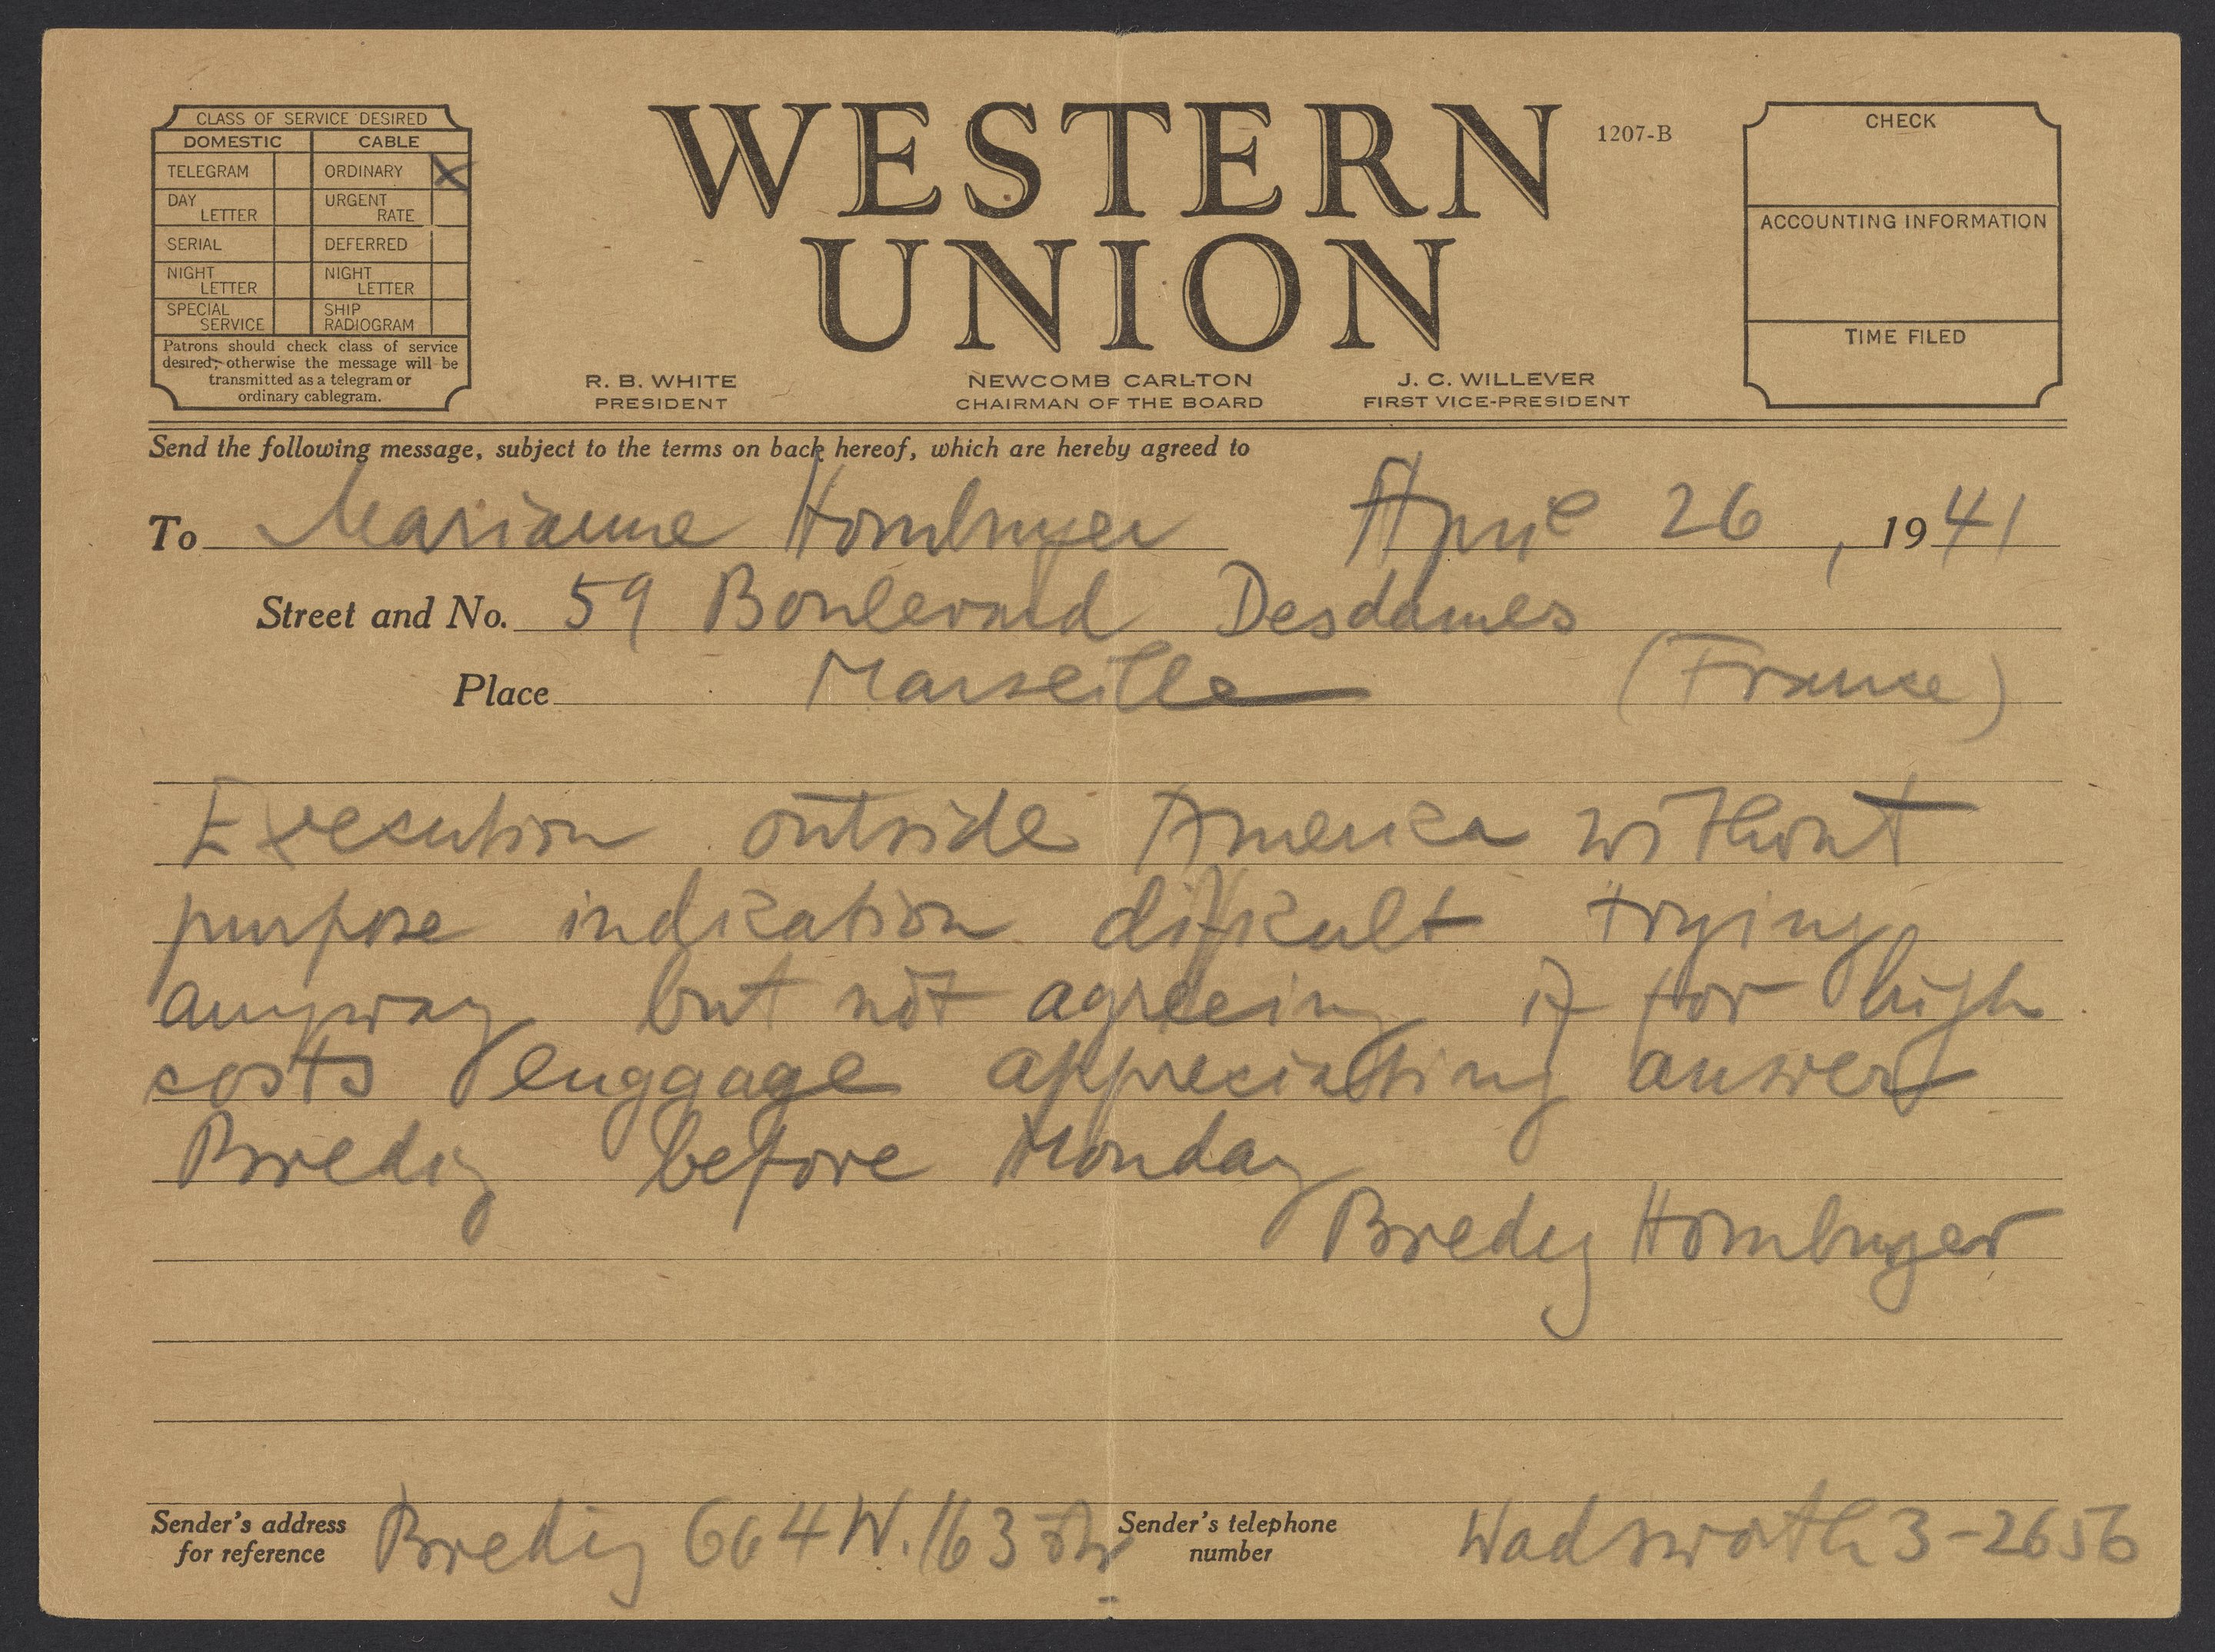 CLASS OF SERVICE DESIRED
DOMESTIC CABLE
TELEGRAM ORDINARY X
DAY LETTER URGENT RATE
SERIAL DEFERRED
NIGHT LETTER NIGHT LETTER
SPECIAL SERVICE SHIP RADIOGRAM
Patrons should check class of service
desired; otherwise the message will be
transmitted as a telegram or
ordinary cablegram.
WESTERN
UNION
1207-B
R. B. WHITE
PRESIDENT
NEWCOMB CARLTON
CHAIRMAN OF THE BOARD
J. C. WILLEVER
FIRST VICE-PRESIDENT
CHECK
ACCOUNTING INFORMATION
TIME FILED
Send the following message, subject to the terms on back hereof, which are hereby agreed to
To Marianne Homburger April 26, 1941
Street and No. 59 Boulevard Desdames
Place Marseille (France)
Execution outside America without
purpose indication difficult trying
anyway but not agreeing if for high
costs enggage appreciating answer
Bredig before Monday
Bredig Homburger
Sender's address
for reference
Bredig 664 W. 163 Str
Sender's telephone
number
Wadsworth 3-2656